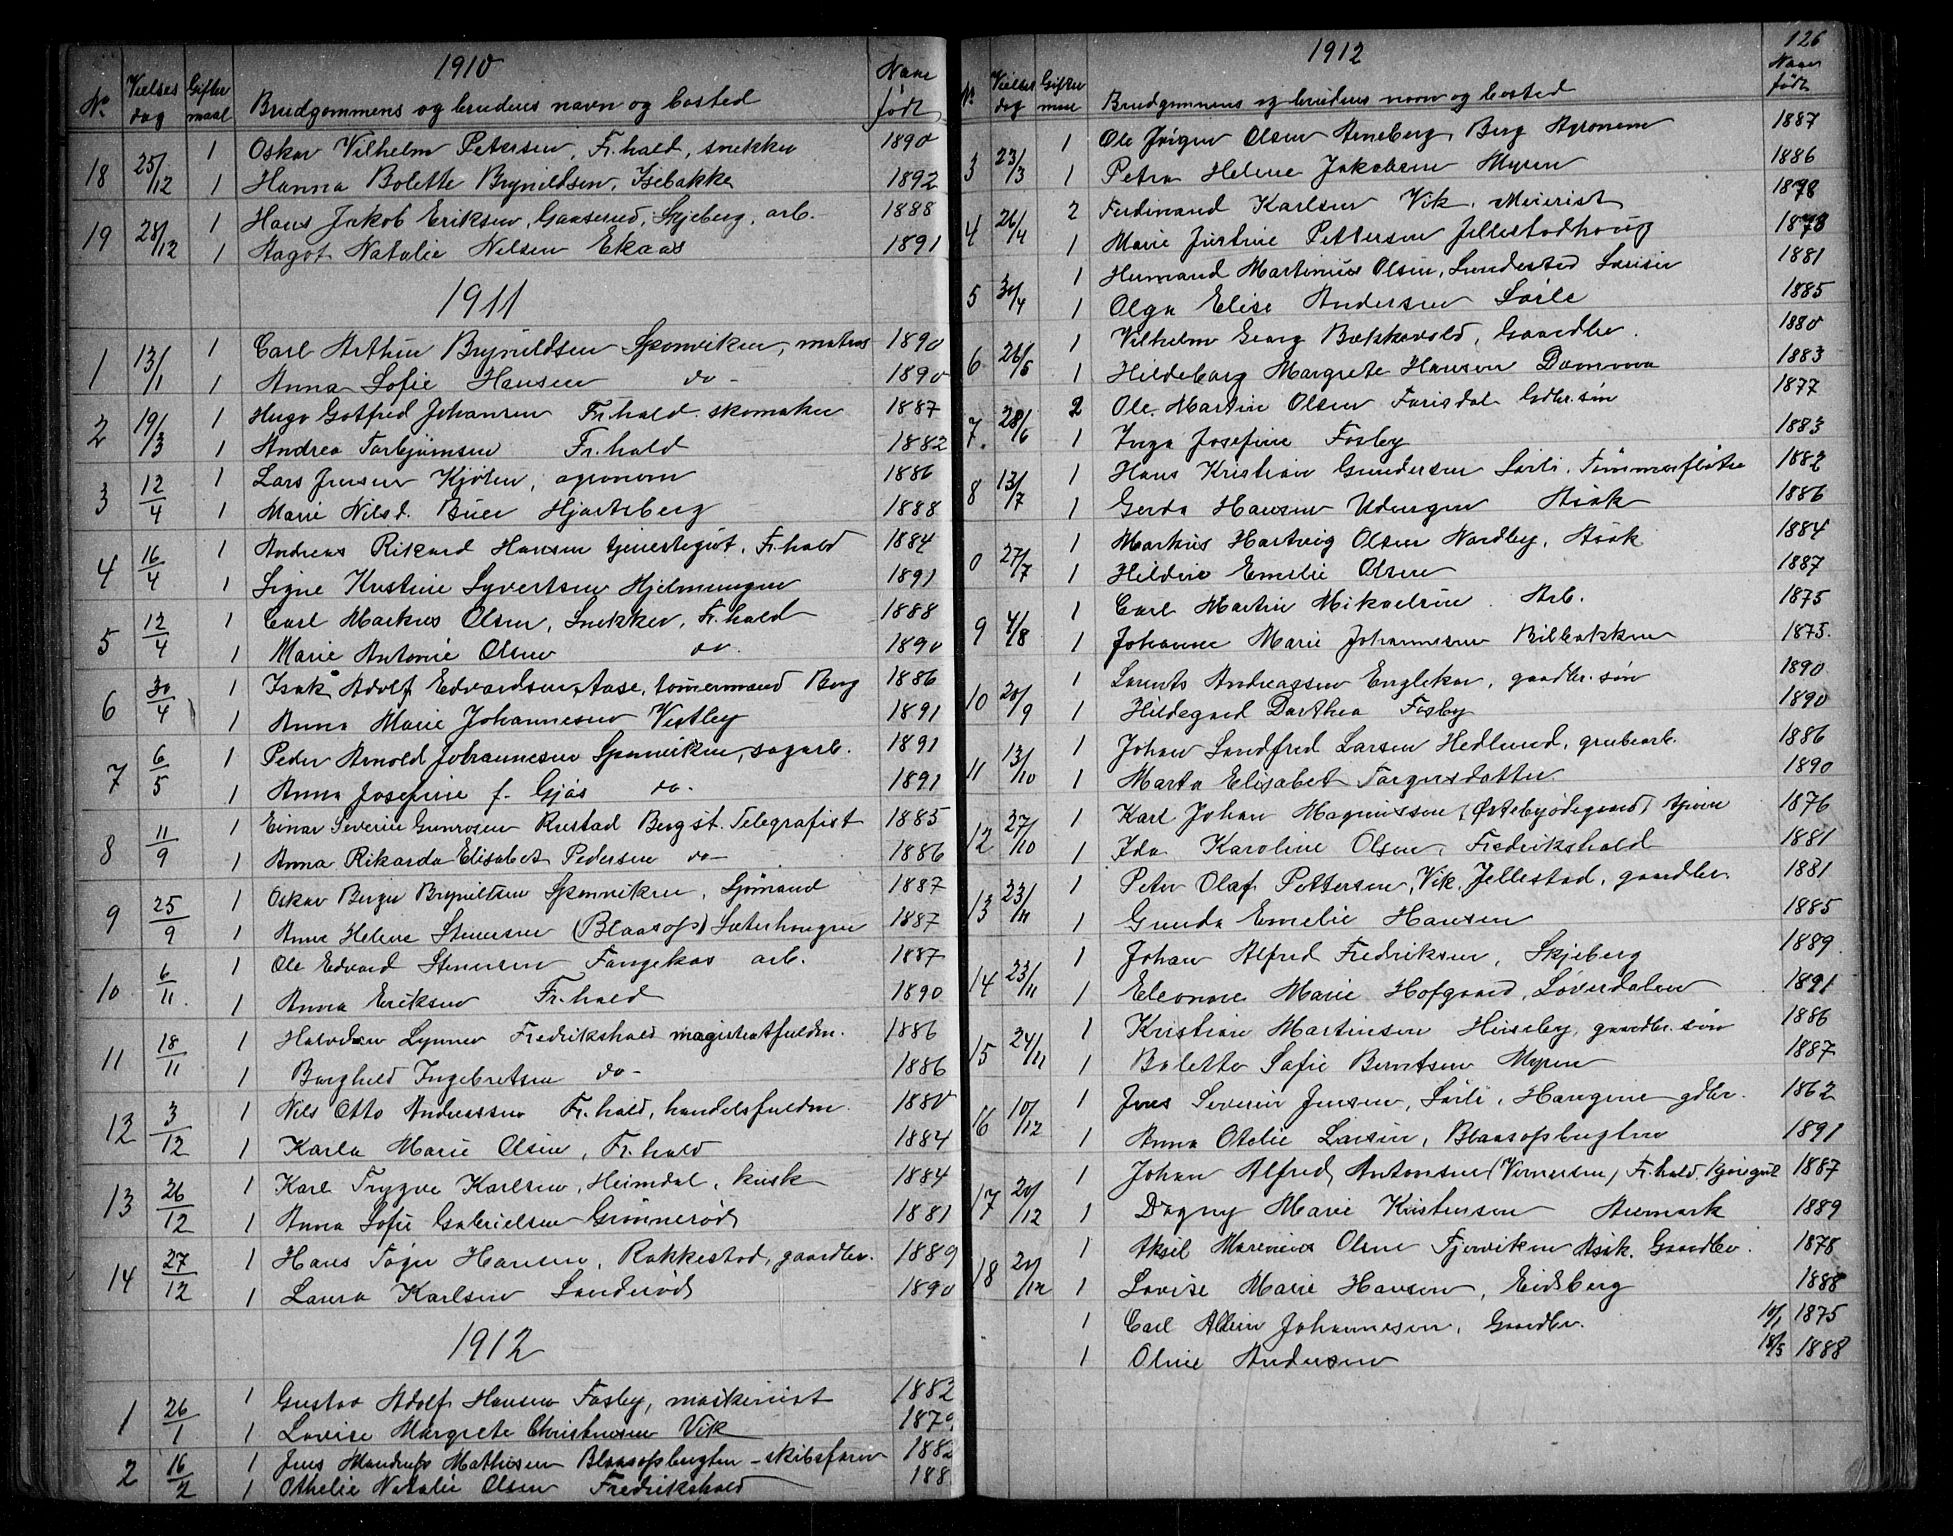 1910
No Vielses dag Gifter maal Brudgommens og brudens navn og bosted Naar født
18 25/12 1 Oskar Vilhelm Petersen, Fr.hald, snekker 1890
1 Hanna Bolette Bryneldsen, Isebakke 1892
19 28/12 1 Hans Jakob Eriksen, Skjeberg, arb. 1888
1 Aagot Natalie Nilsen Ekaas 1891
1911
1 13/1 1 Carl Arthur Bryneldsen Sponviken, matros 1890
1 Anna Sofie Hansen do - 1890
2 19/3 1 Hugo Gotfred Johansen Fr.hald. skomaker 1887
1 Andrea Torbjørnsen Fr.hald 1882
3 12/4 1 Lars Jensen Kjølen, agronom 1886
1 Marie Nilsd. Buer Hjortsberg 1888
4 16/4 1 Andreas Rikard Hansen tjenestegut, Fr.hald 1884
1 Signe Kristine Syvertsen Hjelmungen 1891
5 12/4 1 Carl Markus Olsen, Snekker, Fr.hald 1888
1 Marie Antonie Olsen do. 1890
6 30/4 1 Isak Adolf Edvardsen Aase, tømermand Berg 1886
1 Anna Marie Johannesen Vestby 1891
7 6/5 1 Peder Arnold Johannesen Sponviken, sagarb. 1891
1 Anna Josefine f. Gjøs do. 1891
8 11/9 1 Einar Severin Gunrosen Rustad Berg st. Telegrafist 1885
1 Anna Rikarda Elisabet Pedersen do - 1886
9 25/9 1 Oskar Birger Bryneldsen Sponviken, Sjømand 1887
1 Anne Helene Stenersen (Blaasop) Sæterhaugen 1887
10 6/11 1 Ole Edvard Stenersen Fangekas arb. 1887
1 Anna Eriksen Fr.hald 1890
11 18/11 1 Halvdan Lynner Fredrikshald magistratfuldm. 1886
1 Borghild Ingebretsen do - 1886
12 3/12 1 Nils Otto Andreassen Fr.hald, handelsfuldm. 1880
1 Karla Marie Olsen, Fr.hald 1884
13 26/12 1 Karl Trygve Karlsen, Heimdal, kusk 1884
1 Anna Sofie Gabrielsen Grønnerød 1881
14 27/12 1 Hans Hansen, Rakkestad, gaardbr. 1889
1 Laura Karlsen Sanderød 1890
1912
1 26/1 1 Gustav Adolf Hansen Fosby, maskinist 1882
1 Lovise Margrete Christensen Vik 1879
2 16/2 1 Jens Mandrup Mathisen Blaasopbugten - skibsfører 1882
1 Othelie Natalie Olsen Fredrikshald 188
126
1912
No Vielses dag Gifter maal Brudgommens og brudens navn og bosted Naar født
3 23/3 1 Ole Jørgen Olsen Arneberg, Berg Agronom 1887
1 Petra Helene Jakobsen Myren 1886
4 26/4 2 Ferdinand Karlsen Vik, Meierist 1878
1 Marie Justine Pettersen Jellestadhaug 1878
5 30/4 1 Hermand Martinius Olsen, Lundestad 1881
1 Olga Elise Andersen Sørli 1885
6 26/5 1 Vilhelm Georg Bækkevold, Gaardbr. 1880
1 Hildeborg Margrete Hansen Dammen 1883
7. 28/6 2 Ole Martin Olsen Torisdal Gdbr. søn 1877
1 Inga Josefine Fosby 1883
8 13/7 1 Hans Kristian Gundersen Sørli, Tømmerfløter 1882
1 Gerda Hansen Udengen Asak 1886
0 27/7 1 Markus Hartvig Olsen Nordby, Asak 1884
1 Hildine Emelie Olsen 1887
9 4/8 1 Carl Martin Mikaelsen Arb. 1875
1 Johanne Marie Johannesen Bilbakken 1875.
10 20/9 1 Lorents Andreassen Englekor, gaardbr. søn 1890
1 Hildegard Dorthea Fosby 1890
11 13/10 1 Johan Sandfred Larsen Hedlund, grubearb. 1886
1 Marta Elisabet Torgersdatter 1890
12 27/10 1 Karl Johan Magnussen (Østebyødegaard) 1876
1 Ida Karoline Olsen, Fredrikshald 1881
13 23/11 1 Peter Olaf Pettersen, Vik, Jellestad, gaardbr. 1881
1 Gunda Emelie Hansen 1885
14 23/11 1 Johan Alfred Fredriksen, Skjeberg 1889
1 Eleonore Marie Hofgaard, Løverdalen 1891
15 24/11 1 Kristian Martinsen Heiseby, gaardbr. søn 1886
1 Bolette Sofie Berntsen Myren 1887
16 10/12 1 Jens Severin Jensen, Sørli, Haugene gdbr. 1862
1 Anna Otelie Larsen, Blaasopbugten 1891
17 20/12 1 Johan Alfred Antonsen (Vernersen) Fr.hald, 1887
1 Dagny Marie Kristensen Aremark 1889
18 20/12 1 Aksel Marenius Olsen Tjerviken Asak. Gaardbr. 1878
1 Lovise Marie Hansen, Eidsberg 1888
1 Carl Albin Johannesen, Gaardbr. 10/1 1875
1 Oline Andersen 18/5 1888